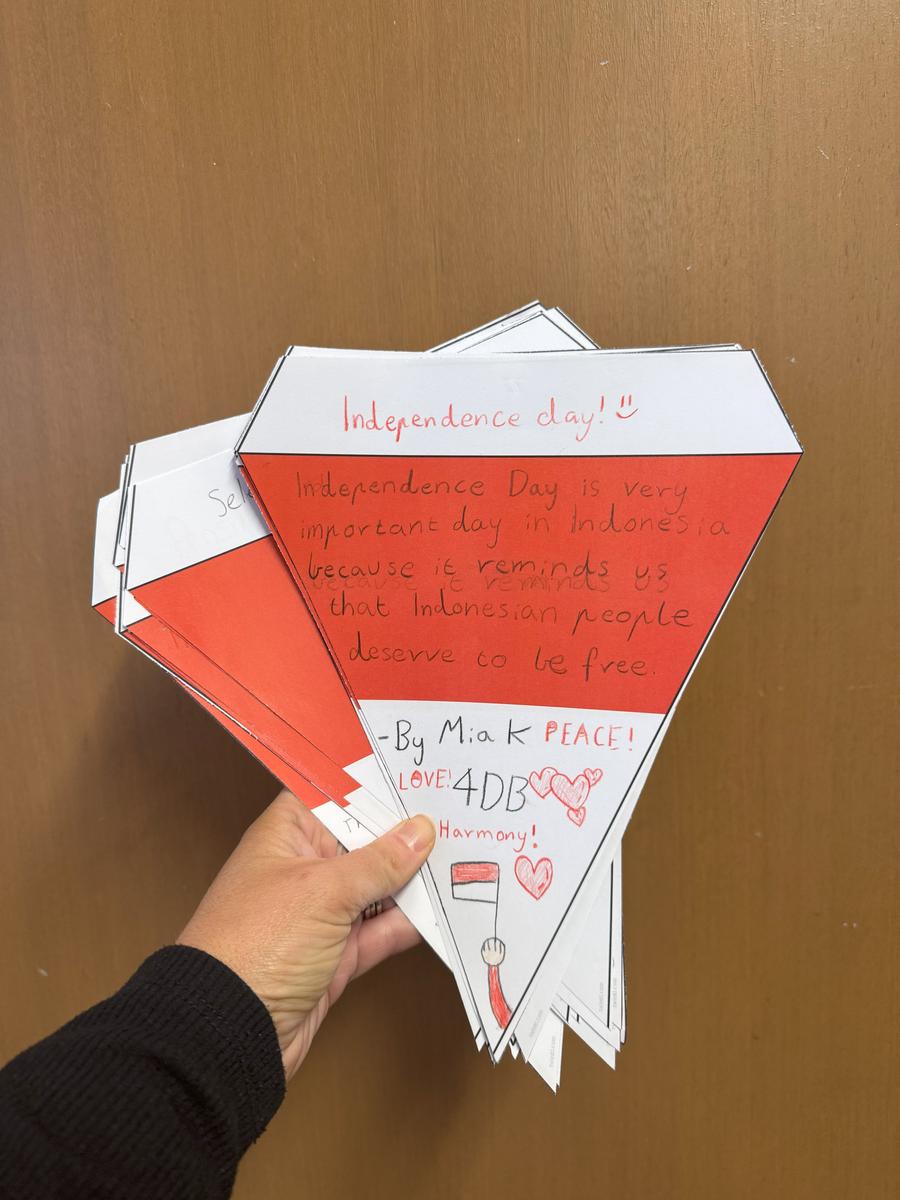 Independence day!
Independence Day is very
important day in Indonesia
because it reminds us
that Indonesian people
deserve to be free.
-By Mia K PEACE!
LOVE! 4DB
Harmony!
Sel